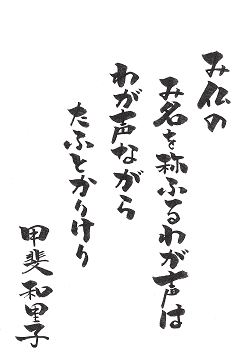 み仏の
み名を称ふるわが声は
わが声ながら
たふとかりけり
甲斐和里子